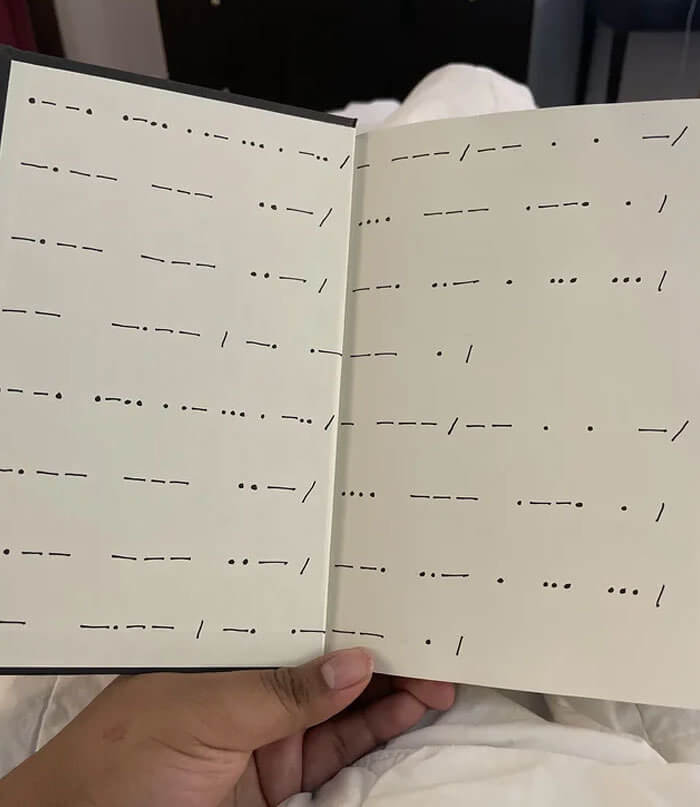 .--. .-.. . .- ... . -.. / - --- / -- . . - /
-.-- --- ..- / .... --- .--. . /
-.-- --- ..- / --. ..- . ... ... /
-- -.-- / -. .- -- . /
.--. .-.. . .- ... . -.. / - --- / -- . . - /
-.-- --- ..- / .... --- .--. . /
.-- --- ..- / --. ..- . ... ... /
- -.-- / -. .- -- . /